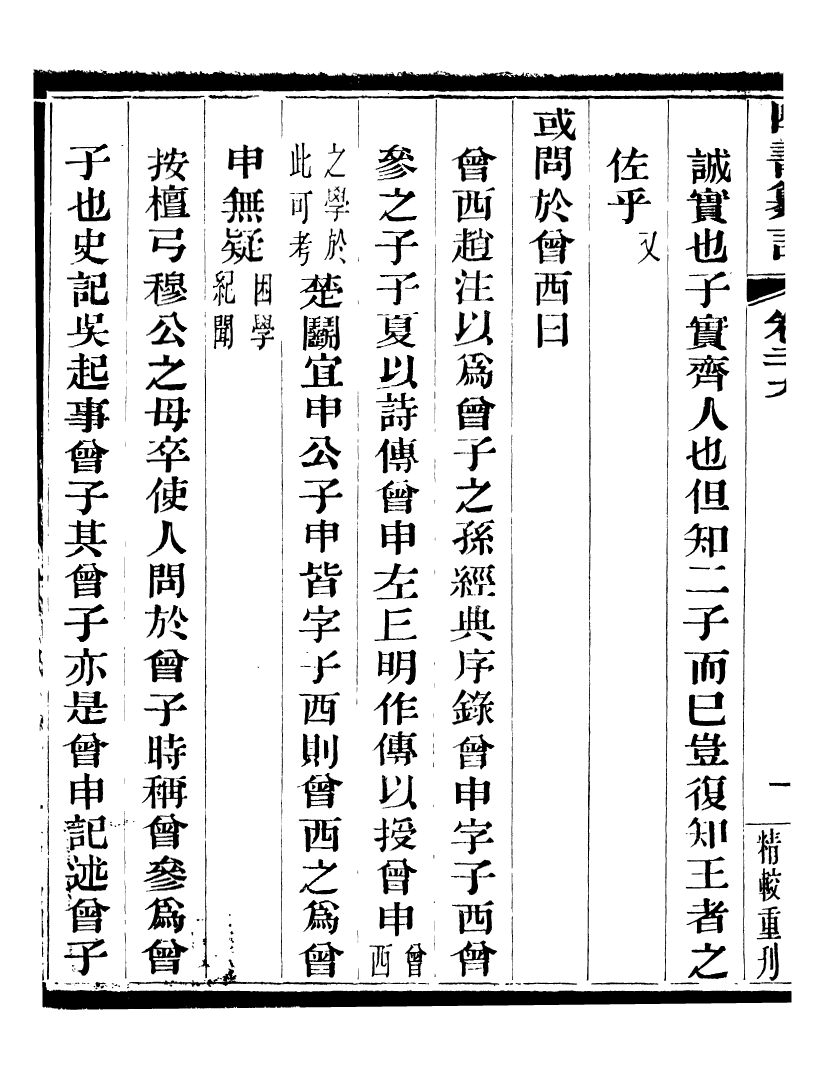 四書纂言 卷二 一 精較重刋
誠實也子實齊人也但知二子而已豈復知王者之
佐乎又
或問於曾西曰
曾西趙注以爲曾子之孫經典序錄曾申字子西曾
參之子子夏以詩傳曾申左丘明作傳以授曾申曾西
之學於此可考楚鬬宜申公子申皆字子西則曾西之爲曾
申無疑困學紀聞
按檀弓穆公之母卒使人問於曾子時稱曾參爲曾
子也史記吳起事曾子其曾子亦是曾申記述曾子